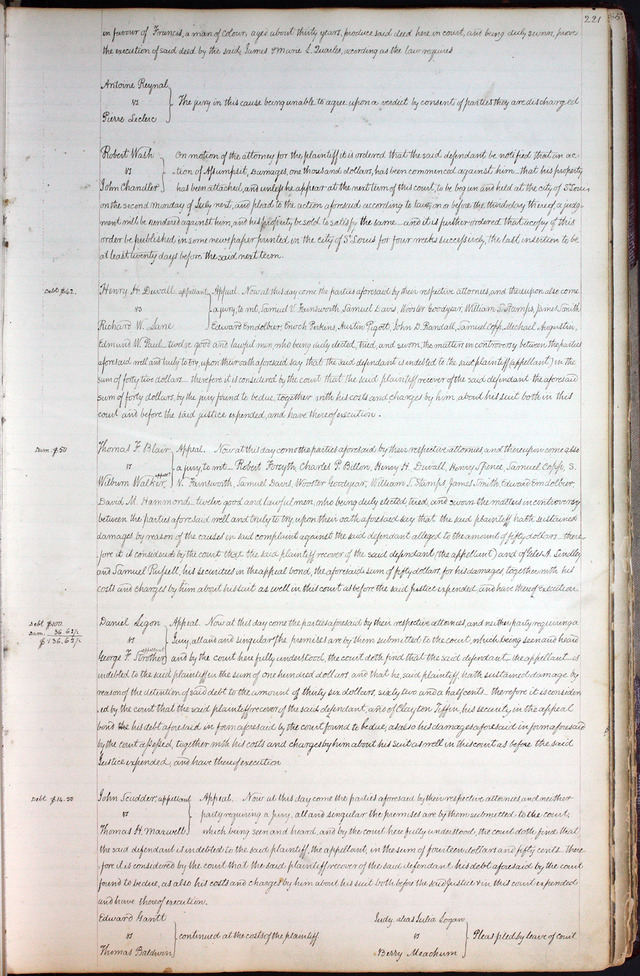 221
in favour of Francis, a man of colour, aged about thirty years, produce said deed here in court, and being duly sworn, prove
the execution of said deed by the said James & Marie L. Quarles, according as the law requires
Antoine Reynal
vs
Pierre Leclerc
The jury in this cause being unable to agree upon a verdict by consent of parties they are discharged
Robert Wash
vs
John Chandler
On motion of the attorney for the plaintiff it is ordered that the said defendant be notified that an ac-
tion of Assumpsit, Damages, one thousand dollars, has been commenced against him that his property
has been attached, and unless he appear at the next term of this court, to be begun and held at the city of St. Louis
on the second monday of July next, and plead to the action aforesaid according to law, on or before the third day thereof, a judg-
ment will be rendered against him, and his property be sold to satisfy the same and it is further ordered that a copy of this
order be published in some newspaper printed in the city of St. Louis for four weeks successively, the last insertion to be
at least twenty days before the said next term.
Debt $42.
Henry H. Duvall, appellant
vs
Richard W. Lane
Appeal. Now at this day come the parties aforesaid by their respective attornies, and thereupon also come
a jury, to wit, Samuel V. Farnsworth, Samuel Davis, Wooster Goodyear, William S. Stamps, James Smith
Edward Emdolber, Enoch Perkins, Austin Pigott, John D. Randall, Samuel Copp, Michael Augustin,
Edmund W. Paul twelve good and lawful men, who being duly elected, tried, and sworn the matters in controversy between the parties
aforesaid well and truly to try, upon their oath aforesaid say that the said defendant is indebted to the said plaintiff (appellant) in the
sum of forty two dollars therefore it is considered by the court that the said plaintiff recover of the said defendant the aforesaid
sum of forty dollars, by the jury found to be due, together with his costs and charges by him about his suit both in this
court and before the said justice expended, and have thereof execution.
Dam. $50
Thomas F. Blair
vs
Wilburn Walker, appellant
Appeal. Now at this day come the parties aforesaid by their respective attornies, and thereupon come also
a jury to wit Robert Forsyth, Charles P. Billon, Henry H. Duvall, Henry Spence, Samuel Copp, S.
V. Farnsworth, Samuel Davis, Wooster Goodyear, William S. Stamps, James Smith, Edward Emdolber,
David M. Hammond twelve good and lawful men, who being duly elected tried, and sworn the matters in controversy
between the parties aforesaid well and truly to try upon their oath aforesaid say that the said plaintiff hath sustained
damages by reason of the causes in said complaint against the said defendant alleged to the amount of fifty dollars there
fore it is considered by the court that the said plaintiff recover of the said defendant (the appellant) and of
and Samuel Russell, his securities in the appeal bond, the aforesaid sum of fifty dollars for his damages, together with his
costs and charges by him about his suit as well in this court as before the said justice expended, and have thereof execution
Debt $100.
Dam. 36.62½
$136.62½
Daniel Ligon
vs
George F. Strother, appellant
Appeal. Now at this day come the parties aforesaid by their respective attornies, and neither party requiring a
Jury, all and singular the premises are by them submitted to the court, which being seen and heard
and by the court here fully understood, the court doth find that the said defendant the appellant is
indebted to the said plaintiff in the sum of one hundred dollars, and that he, said plaintiff, hath sustained damage by
reason of the detention of said debt to the amount of thirty six dollars, sixty two and a half cents therefore it is consider
ed by the court that the said plaintiff recover of the said defendant, and of Clayton Tiffin, his security in the appeal
bond the his debt aforesaid in form aforesaid by the court found to be due, as also his damages aforesaid in form aforesaid
by the court assessed, together with his costs and charges by him about his suit as well in this court as before the said
Justice expended, and have thereof execution
Debt $14.50
John Scudder, appellant
vs
Thomas H. Maxwell
Appeal. Now at this day come the parties aforesaid by their respective attornies and neither
party requiring a jury, all and singular the premises are by them submitted to the court,
which being seen and heard, and by the court here fully understood, the court doth find that
the said defendant is indebted to the said plaintiff, the appellant, in the sum of fourteen dollars and fifty cents. There
fore it is considered by the court that the said plaintiff recover of the said defendant his debt aforesaid by the court
found to be due, as also his costs and charges by him about his suit both before the said justice & in this court expended
and have thereof execution.
Edward Hantt
vs
Thomas Baldwin
continued at the costs of the plaintiff
Judy, alias Julia Logan
vs
Berry Meachum
Pleas filed by leave of court